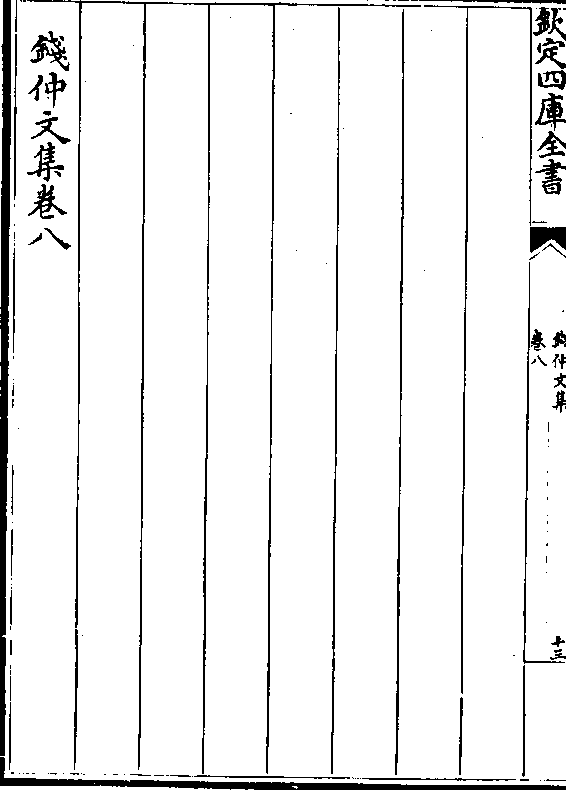 欽定四庫全書
錢仲文集
卷八
十三
錢仲文集卷八